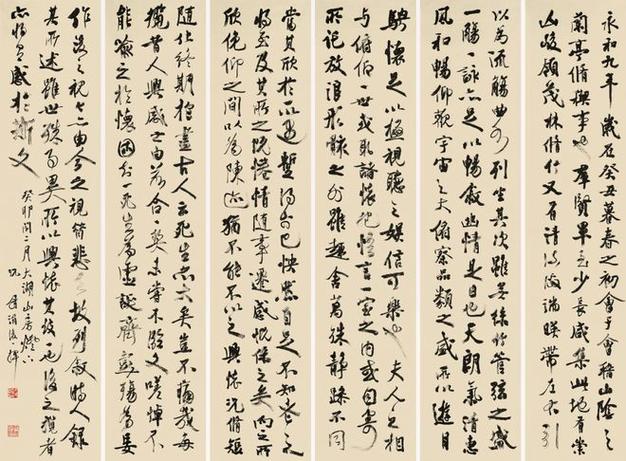 永和九年歲在癸丑暮春之初會于會稽山陰之
蘭亭脩禊事也羣賢畢至少長咸集此地有崇
山峻嶺茂林脩竹又有清流激湍暎帶左右引
以為流觴曲水列坐其次雖無絲竹管弦之盛
一觴一詠亦足以暢敘幽情是日也天朗氣清惠
風和暢仰觀宇宙之大俯察品類之盛所以遊目
騁懷足以極視聽之娛信可樂也夫人之相
與俯仰一世或取諸懷抱悟言一室之内或因寄
所託放浪形骸之外雖趣舍萬殊靜躁不同
當其欣於所遇暫得於己快然自足不知老之
將至及其所之既惓情隨事遷感慨係之矣向之所
欣俛仰之間以為陳迹猶不能不以之興懷況脩短
隨化終期於盡古人云死生亦大矣豈不痛哉每
攬昔人興感之由若合一契未嘗不臨文嗟悼不
能喻之於懷固知一死生為虛誕齊彭殤為妄
作後之視今亦由今之視昔悲夫故列敘時人錄
其所述雖世殊事異所以興懷其致一也後之覽者
亦將有感於斯文
癸卯閏二月太湖山房燈下